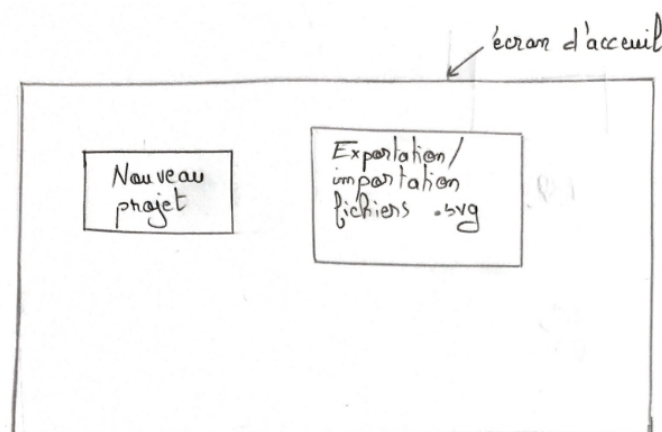 écran d'acceuil
Nouveau
projet
Exportation/
importation
fichiers .svg